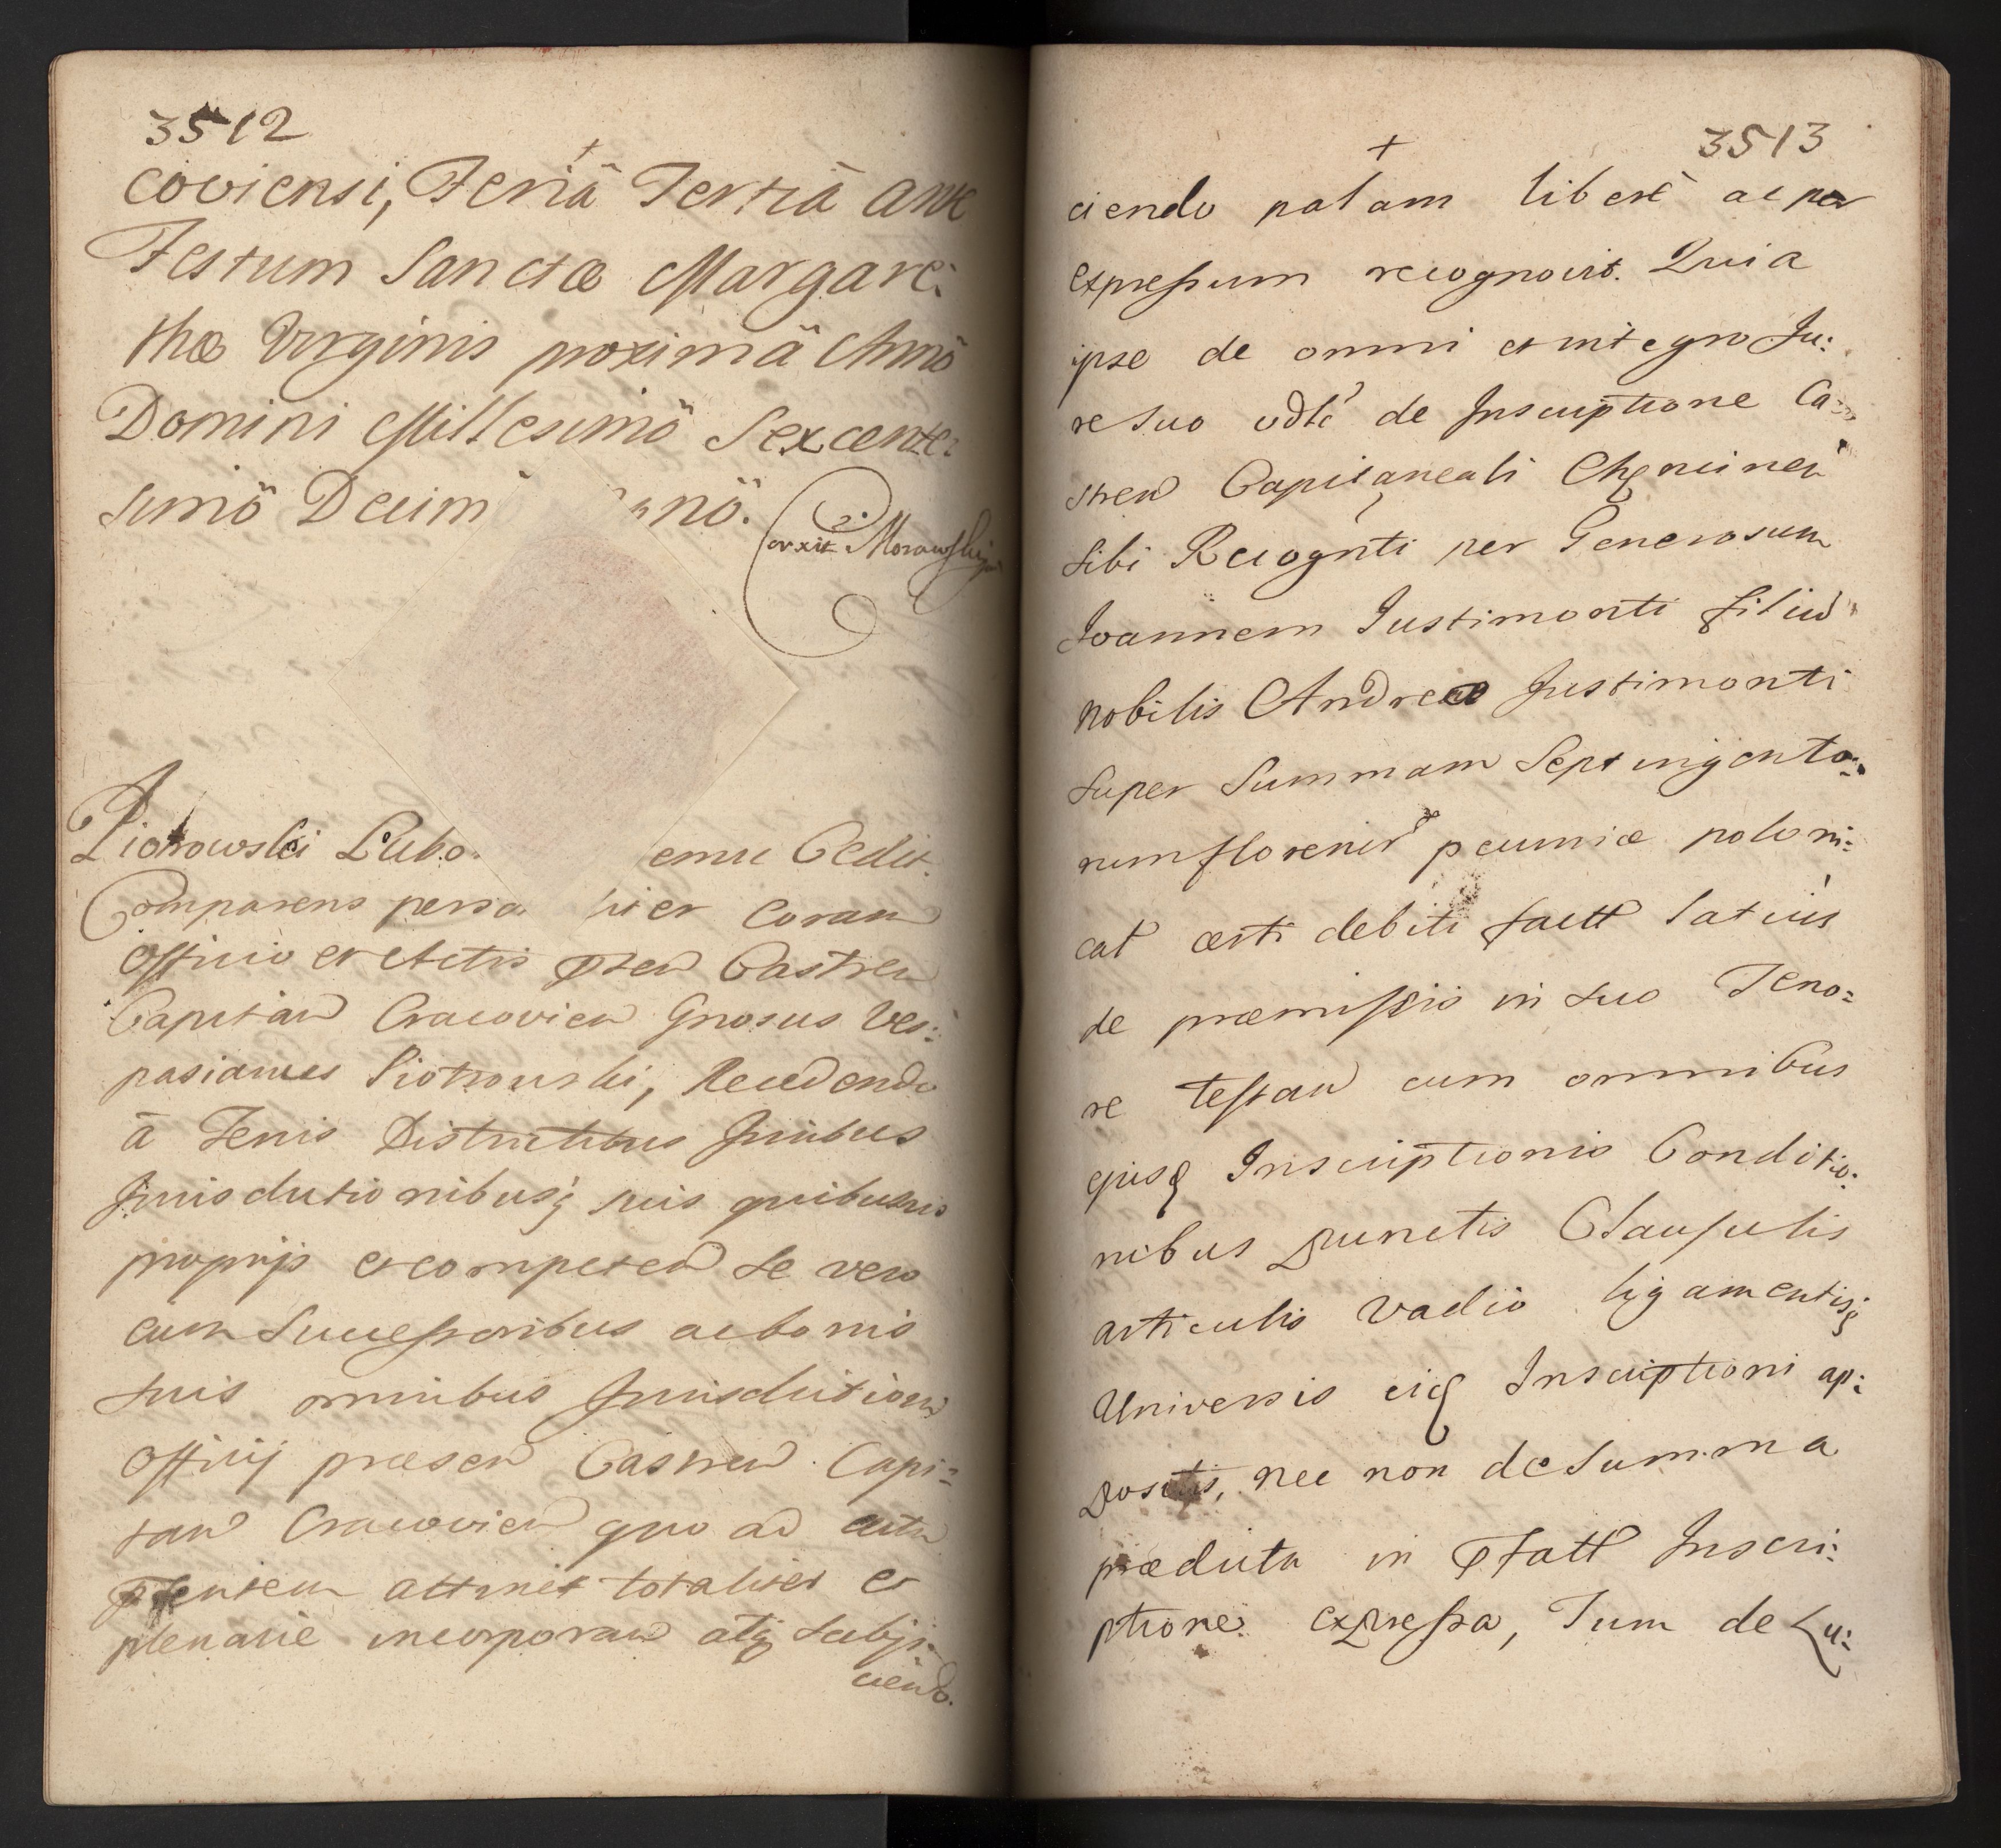 3512
coviensi, Feriâ Tertiâ ante
Festum Sanctæ Margare:
thæ Virginis proximâ Annô
Domini Millesimô Sexcente:
simô Decim nô.
Corxit Morawski
Piotrowski Lubo. emu Cedit.
Comparens perso liter coram
Officio et Actis pnten Castren
Capitan Cracovien Gnosus Ves:
pasianus Piotrowski, Recedendo
à Terris Districtibus Juribus
Jurisdictionibusq suis quibusvis
proprijs et competen se vero
cum Successoribus ac bonis
suis omnibus Jurisdictioni
Officij præsen Castren Capi=
tan Cracovien quo ad actum
pntentem attinet totaliter et
plenarie incorporan atq subji=
ciendo.
3513
ciendo palam liberè ac per
expressum recognovit. Quia
ipse de omni et integro Ju:
re suo vdlt de Inscriptione Ca:
stren Capitaneali Chęncinen
sibi Recognti per Generosum
Joannem Justimonti filiu
nobilis Andreæ Justimonti
super Summam Septingento:
rum florenor pecuniæ poloni:
cal certi debiti factt latiùs
de præmissis in suo Teno=
re testan cum omnibus
ejusq Inscriptionis Conditio:
nibus punctis Clausulis
articulis vadio ligamentisq
Universis eiq Inscriptioni ap:
positis, nec non de Summa
prædicta in pfatt Inscri:
ptione expressa, Tum de Lu: